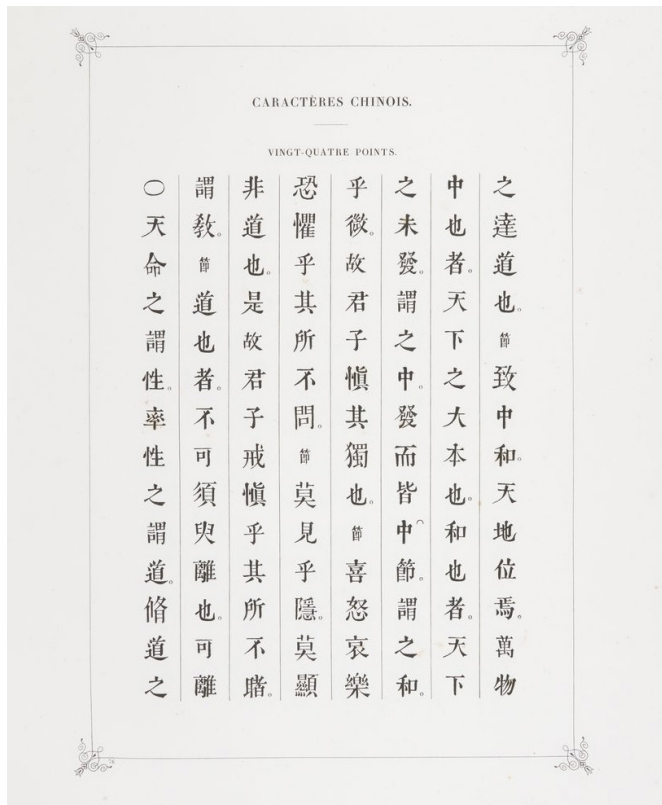 CARACTÈRES CHINOIS.
VINGT-QUATRE POINTS.
〇天命之謂性。率性之謂道。脩道之
謂敎。節道也者。不可須臾離也。可離
非道也。是故君子戒愼乎其所不睹。
恐懼乎其所不問。節莫見乎隱。莫顯
乎微。故君子愼其獨也。節喜怒哀樂
之未發。謂之中。發而皆中節。謂之和。
中也者。天下之大本也。和也者。天下
之達道也。節致中和。天地位焉。萬物